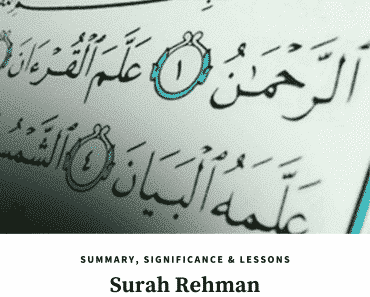 ٱلرَّحْمَـٰنُ ١ عَلَّمَ ٱلْقُرْءَانَ
عَلَّمَهُ ٱلْبَيَانَ ٤ ٱلشَّمْسُ
SUMMARY, SIGNIFICANCE & LESSONS
Surah Rehman